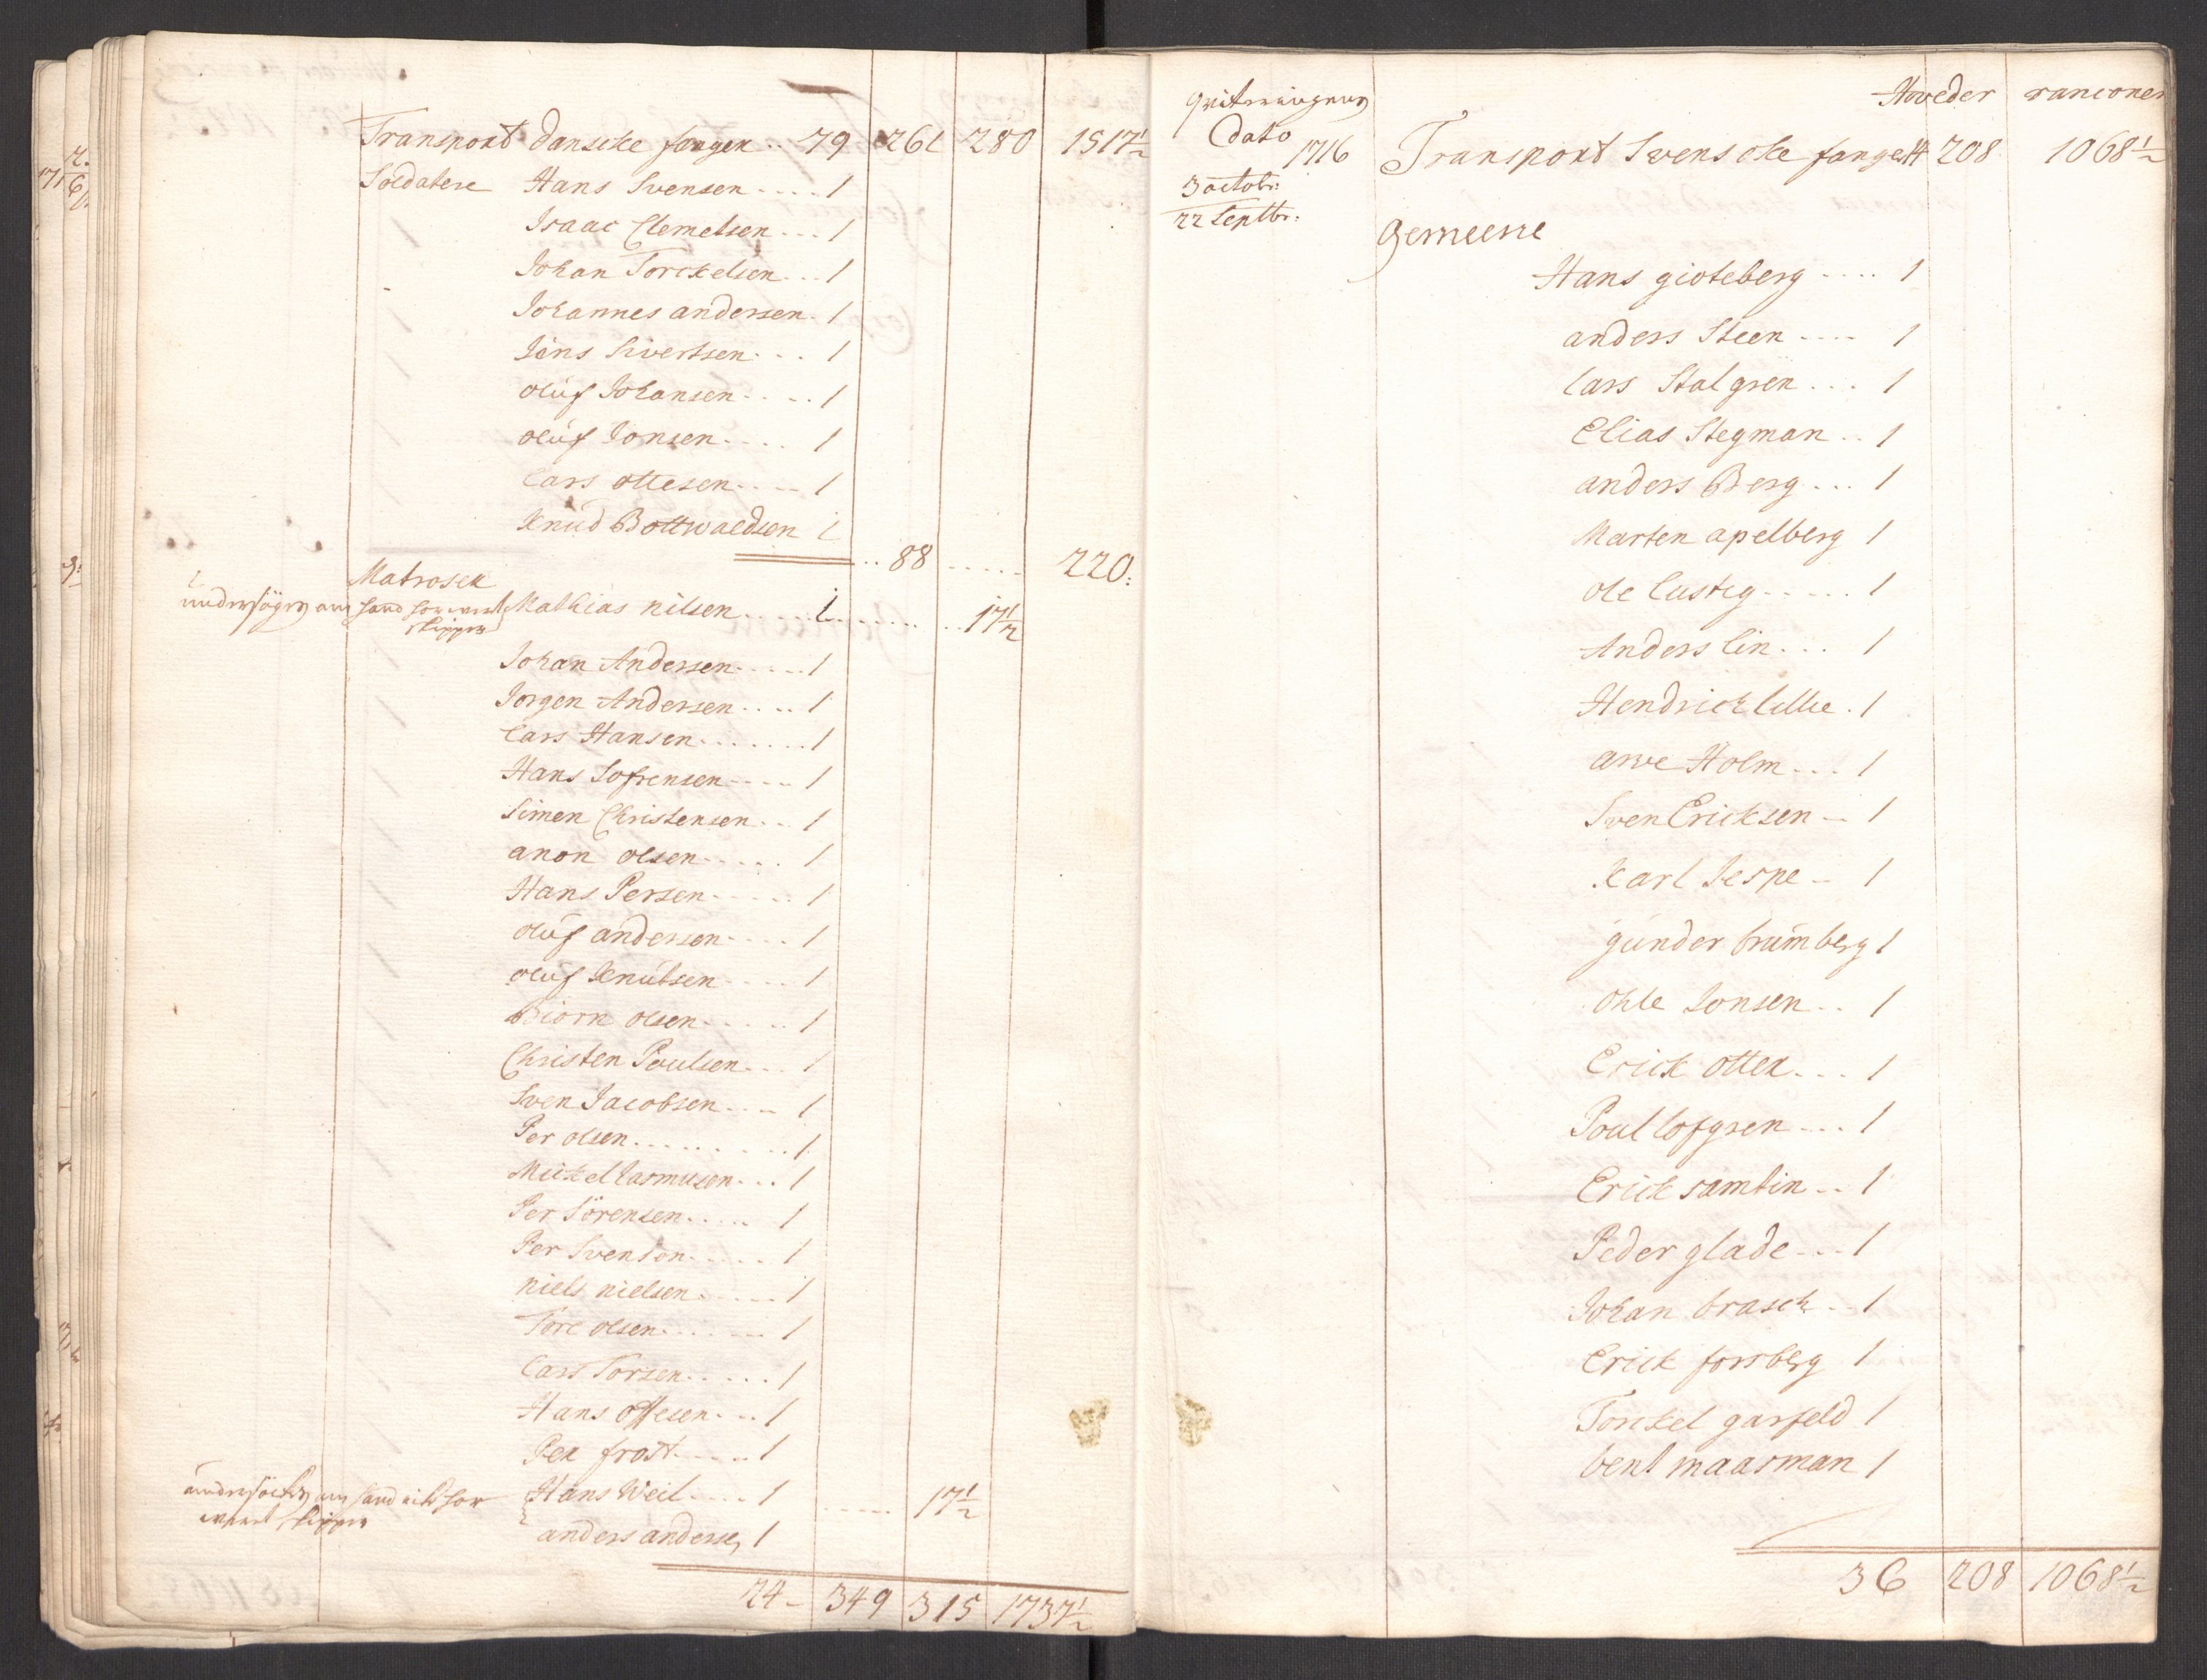 Transport danscke fangen .. 79 261 280 1517½
Soldatere Hans Svensen .... 1
Isaac Clemetsen ... 1
Johan Torckelsen ... 1
Johannes andersen . 1
Jöns Sivertsen ... 1
oluf Johansen .... 1
oluf Jonsen .... 1
Lars ottesen .... 1
Knud Bottwaldsen 1
.. 88 ..... 220:
Matroser
Mathias nilsen ..... 1 ........ 17½
skipper
Johan Andersen ..... 1
Jorgen Andersen .... 1
Lars Hansen ....... 1
Hans Sofrensen .... 1
Simen Christensen .. 1
anon olsen ..... 1
Hans Persen ..... 1
oluf andersen .... 1
oluf Knutsen .... 1
Biorn olsen ..... 1
Christen Poulsen ... 1
Sven Jacobsen .... 1
Per olsen ......... 1
Mickel Rasmusen ... 1
Per Sörensen ..... 1
Per Svenson ..... 1
niels nielsen ..... 1
Tore olsen ...... 1
Lars Torsen ..... 1
Hans ottesen ... 1
Per frost ..... 1
Hans Weil .... 1 ..... 17½
skipper
anders andersen 1
24 – 349 315 1737½
Hoveder rancioner
dato
1716 Transport Svenscke fangen 14 208 1068½
3 octobr:
22 Septbr:
Gemeene
Hans gioteberg .... 1
anders Steen .... 1
Lars Stalgren ... 1
Elias Stegman .. 1
anders Berg ... 1
Marten apelberg 1
Ole Lustig ..... 1
Anders Lin ... 1
Hendrick Lillie . 1
arve Holm ... 1
Sven Ericksen – 1
Karl Jespe – 1
gunder brumberg 1
Ohle Jonsen .. 1
Erick otter ... 1
Poul Lofgren ... 1
Erick Samtin .. 1
Peder glade ... 1
Johan brasch .. 1
Erick forsberg 1
Torckel garfeld 1
bent maasman 1
36 208 1068½